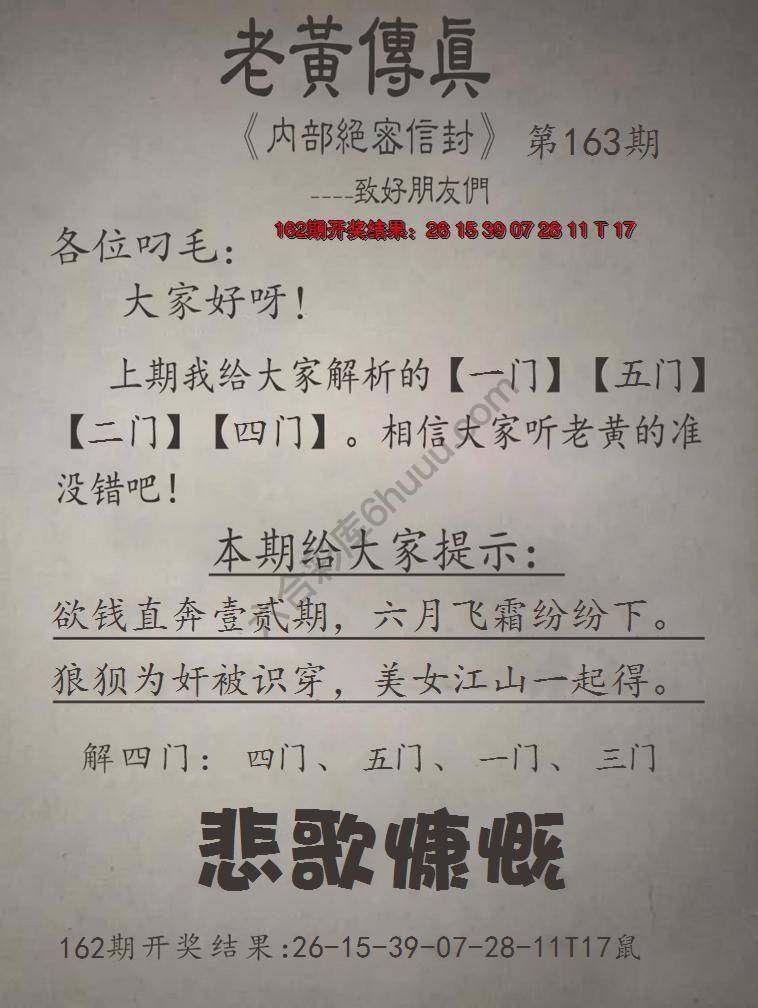 老黃傳真
《内部絕密信封》 第163期
----致好朋友們
162期开奖结果：26 15 39 07 28 11 T 17
各位叼毛：
大家好呀！
上期我给大家解析的【一门】【五门】
【二门】【四门】。相信大家听老黄的准
没错吧！
六合彩库6huuu.com
本期给大家提示：
欲钱直奔壹贰期，六月飞霜纷纷下。
狼狈为奸被识穿，美女江山一起得。
解四门： 四门、 五门、 一门、 三门
悲歌慷慨
162期开奖结果:26-15-39-07-28-11T17鼠